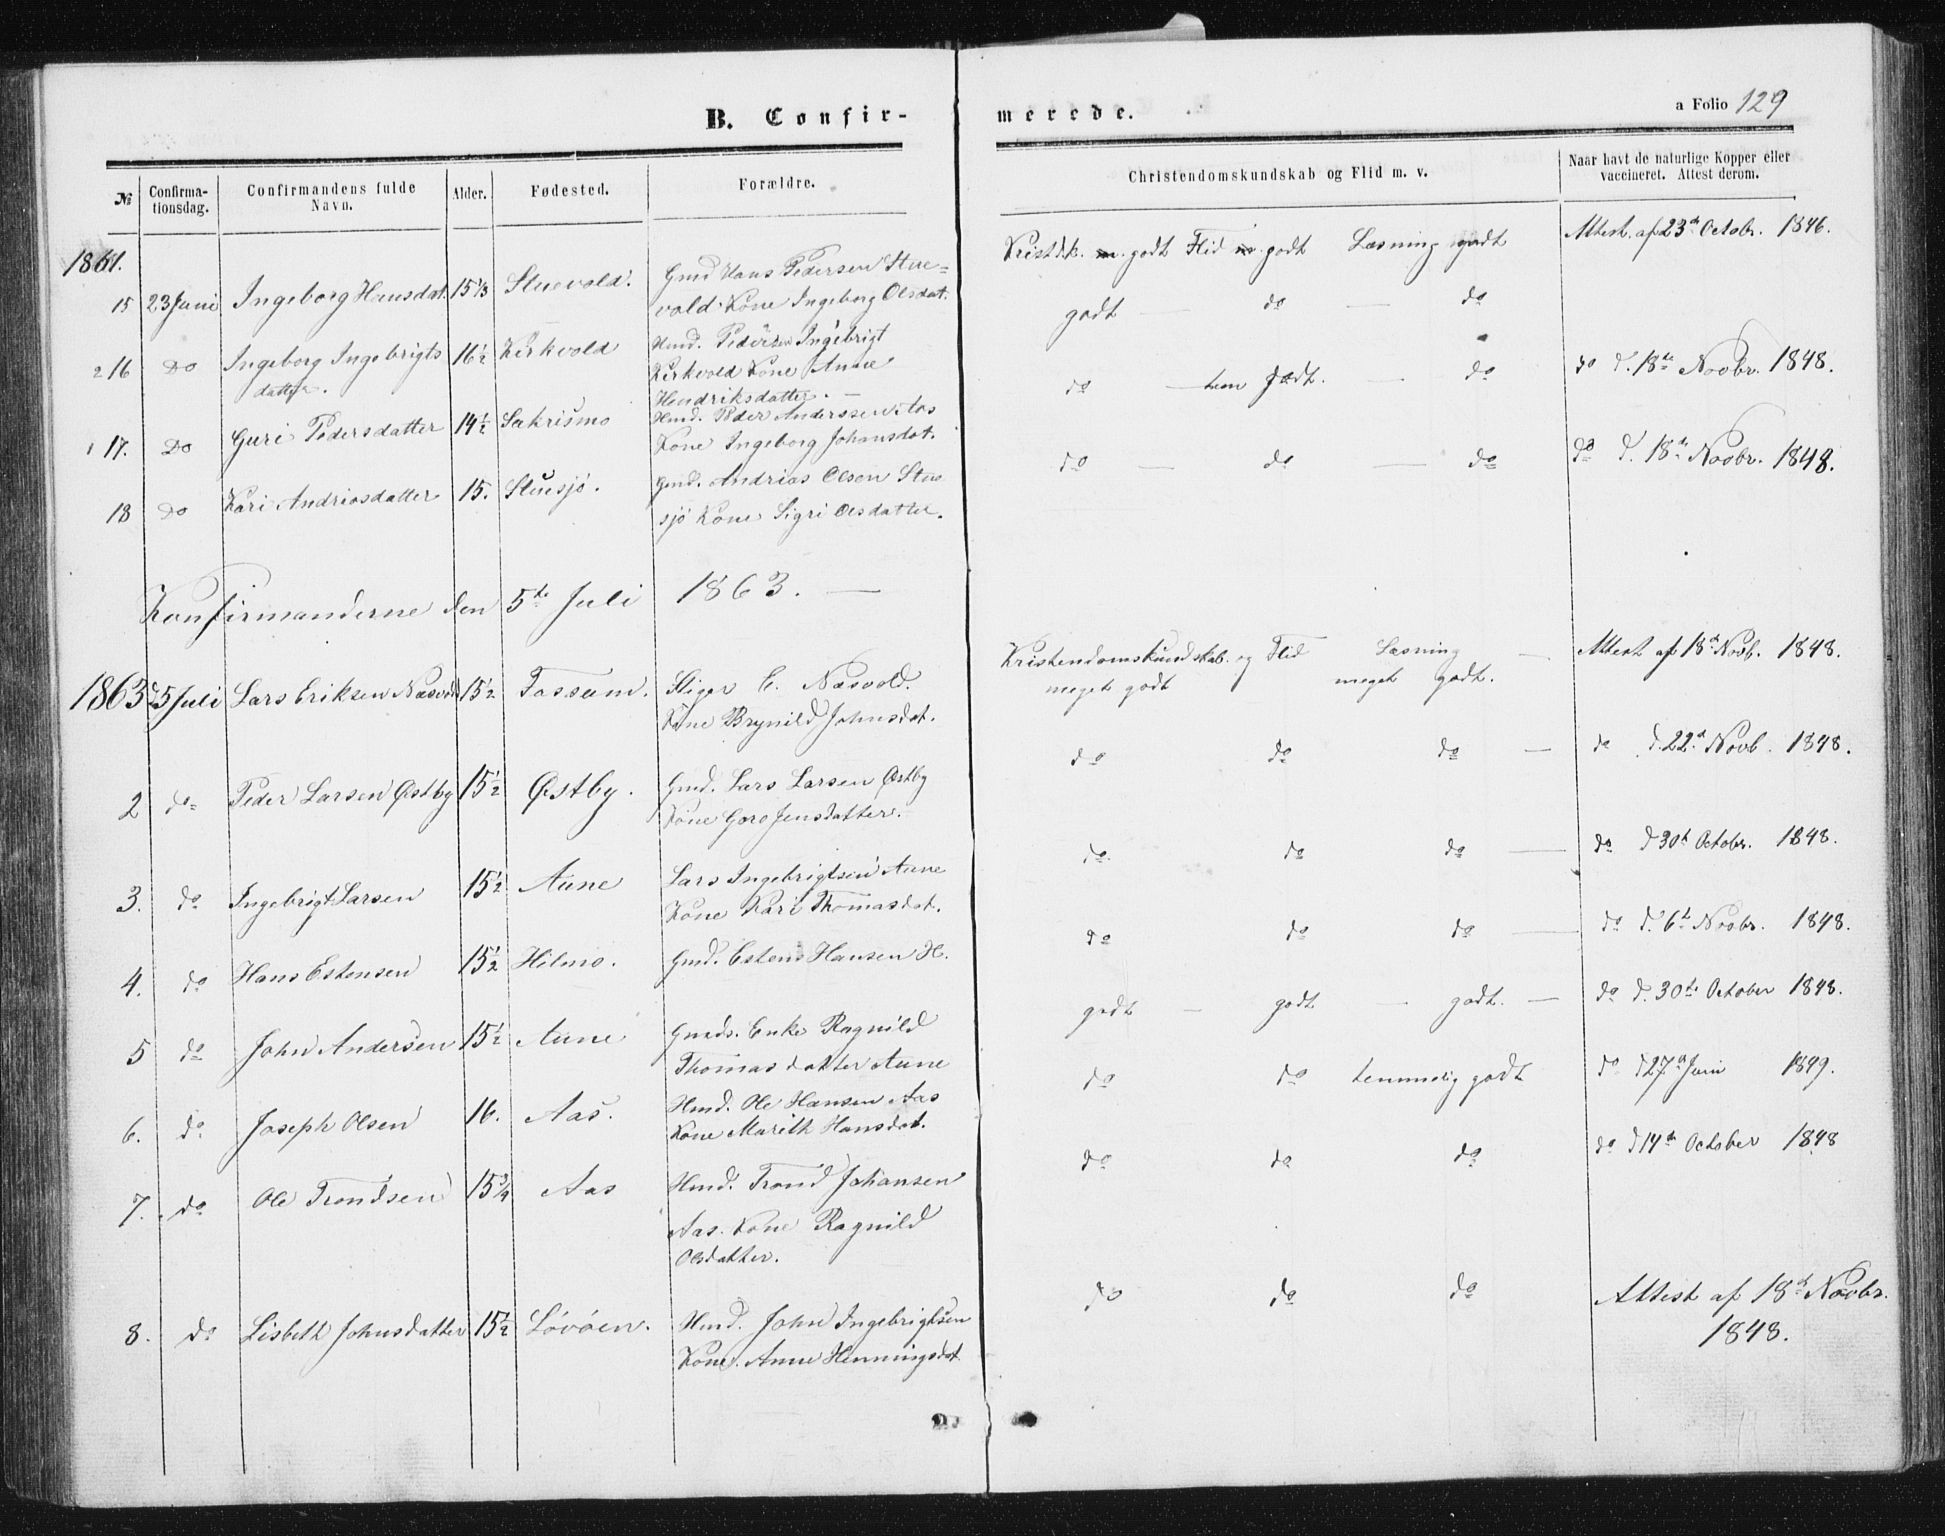 B. Confir-
merede.
a Folio 129
№ Confirma-tionsdag. Confirmandens fulde Navn. Alder. Fødested. Forældre. Christendomskundskab og Flid m. v. Naar havt de naturlige Kopper eller vaccineret. Attest derom.
1861.
Kristdk. godt Flid godt Læsning godt Attest. af 23de Octobr. 1846.
15 23 Juni Ingeborg Hansdat. 15 1/3 Stuevold. Gmd Hans Pedersen Stue=
vold. Kone Ingeborg Olsdat. godt — do — do
2 16 Do Ingeborg Ingebrigts 16 1/2 Kirkvold Hmd. Pedersen Ingebrigt
datter. Kirkvold Kone Anne do — tem godt. — do do d. 18de Novbr. 1848.
Hendriksdatter. —
1 17. Do Guri Pedersdatter 14 1/2 Sakrismo Hmd. Peder Anderssen Aas
Kone Ingeborg Johansdat. do — do — do do d. 18de Novbr. 1848.
18 Do Kari Andriasdatter 15. Stuesjø. Gmd. Andrias Olsen Stue
sjø Kone Sigri Olsdatter.
Konfirmanderne den 5te Juli 1863. —
Kristendomskundskab. og Flid Læsning — Attest af 18de Novb. 1848.
meget godt meget godt.
1863 5 Juli Lars Eriksen Næsvold 15 1/2 Tossum. Stiger E. Næsvold.
Kone Brynild Johnsdat.
do do do — do d. 22de Novb. 1848.
2 do Peder Larsen Østby 15 1/2 Østby. Gmd. Lars Larsen Østby
Kone Goro Jensdatter.
do do do — do d 30te Octobr. 1848.
3. do Ingebrigt Larsen 15 1/2 Aune Lars Ingebrigtsen Aune
Kone Kari Thomasdat.
do do do — do d. 6te Novbr. 1848.
4. do Hans Estensen 15 1/2 Hilmo. Gmd. Estens Hansen H.
godt — godt — godt. — do d. 30te October 1848.
5 do John Andersen 15 1/2 Aune Gmds. Enke Ragnild
Thomasdatter Aune
do do temmelig godt do d 27de Juni 1849.
6. do Joseph Olsen 16. Aas. Hmd. Ole Hansen Aas
Kone Marith Hansdat.
do do do do d 14de October 1848
7. do Ole Trondsen 15 3/4 Aas Hmd. Trond Johansen
Aas. Kone Ragnild
Olsdatter.
do do do Attest af 18de Novbr.
1848.
8. do Lisbeth Johnsdatter 15 1/2 Løvøen. Hmd. John Ingebrigtsen
Kone. Anne Henningsdat